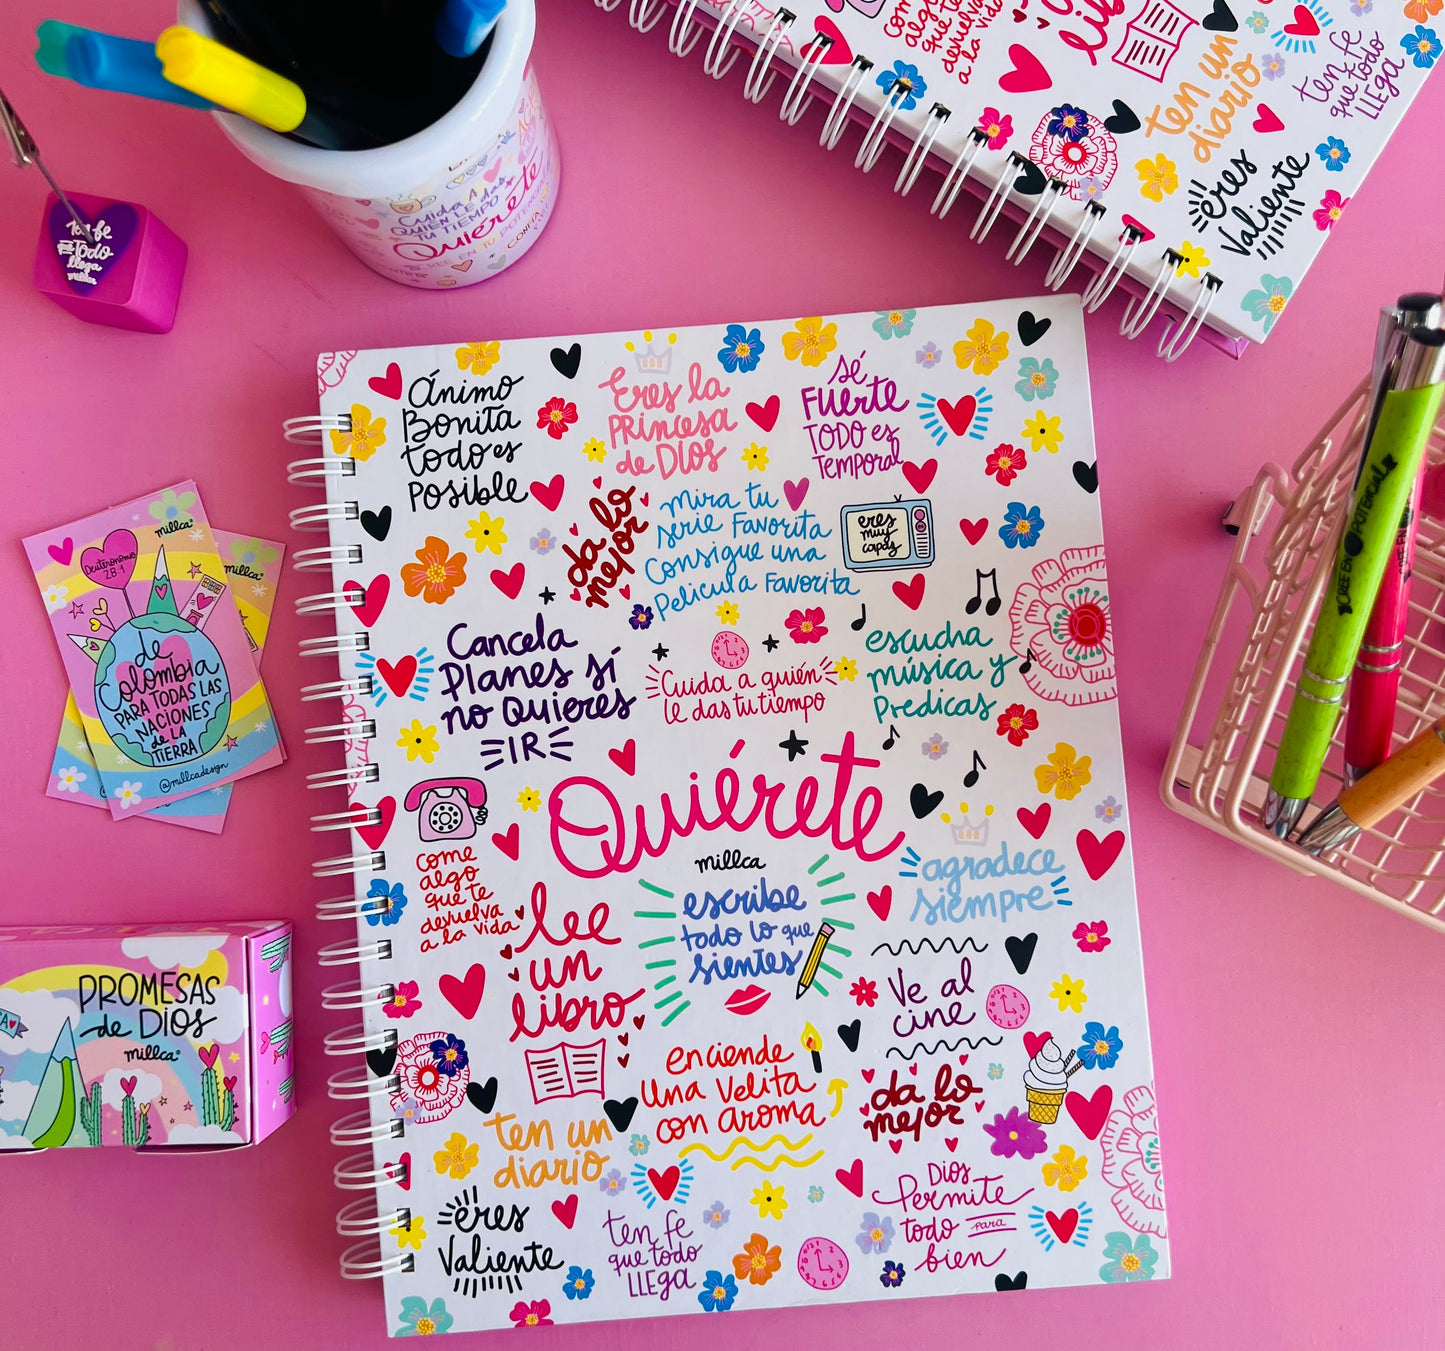 Cuida A
QUIEN LE das
TU TIEMPO
Quiérete
CREE EN TU POTENCIAL
come
algo
que te
devuelva
a la vida
ten un
diario
ten fe
que todo
LLEGA
eres
Valiente
Ten fe
QUE Todo
llega
millca
Ánimo
Bonita
todo es
posible
Eres la
PRINcesa
de DIOS
sé
FUERTE
TODO es
TEMPORAL
da lo
mejor
mira tu
serie Favorita
Consigue una
Pelicula Favorita
eres
muy
capaz
Cancela
Planes sí
no quieres
IR
Cuida a quién
le das tu tiempo
escucha
música y
Predicas
Quiérete
millca
come
algo
que te
devuelva
a la vida
lee
un
libro
escribe
todo lo que
sientes
agradece
siempre
Ve al
cine
enciende
una velita
con aroma
da lo
mejor
ten un
diario
eres
Valiente
ten fe
que todo
LLEGA
Dios
Permite
todo para
bien
millca
Deuteronomio
28:1
de
Colombia
PARA TODAS LAS
NACIONES
de LA
TIERRA
@millcadesign
millca
PROMESAS
de DIOS
millca
CREE EN TU POTENCIAL
CREE EN